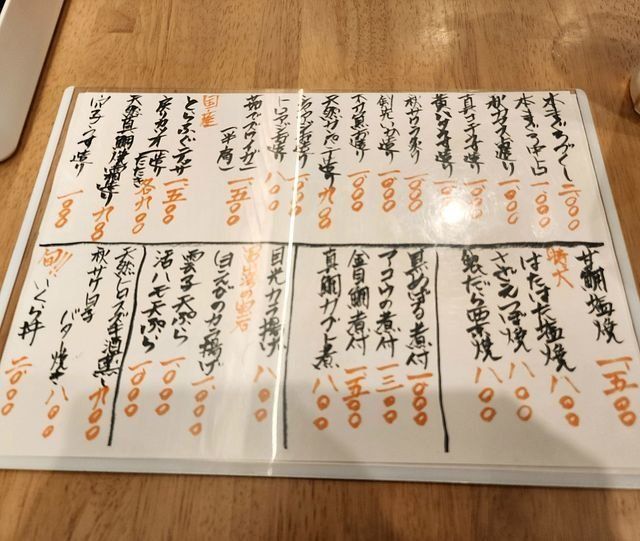 本まぐろづくし 二〇〇〇
本まぐろ中とろ 一〇〇〇
秋カツオ造り 一〇〇〇
真コチうす造り 一〇〇〇
黄ハタうす造り 一〇〇〇
秋サワラ炙り
剣先いか造り 一〇〇〇
一〇〇〇
天然 造り 九〇〇
造り 一〇〇〇
トロサーモン造り 八〇〇
茹でズワイガニ(半肩) 一、五〇〇
国産
とらふぐテッサ 一、五〇〇
戻りカツオ 造り たたき 各九〇〇
天然真鯛焼霜造り 九〇〇
造り 一〇〇〇
甘鯛塩焼 一、五〇〇
特大
はたはた塩焼 八〇〇
さざえつぼ焼 八〇〇
銀だら西京焼 八〇〇
黒めばる煮付 一〇〇〇
アコウの煮付 一三〇〇
金目鯛煮付 一五〇〇
真鯛カブト煮 八〇〇
目光カラ揚げ 八〇〇
白えびのカラ揚げ 一、〇〇〇
雲子天ぷら 一〇〇〇
活ハモ天ぷら 一〇〇〇
天然ヒラス 九〇〇
秋サケ白子 バター焼き 八〇〇
旬!! いくら丼 二〇〇〇